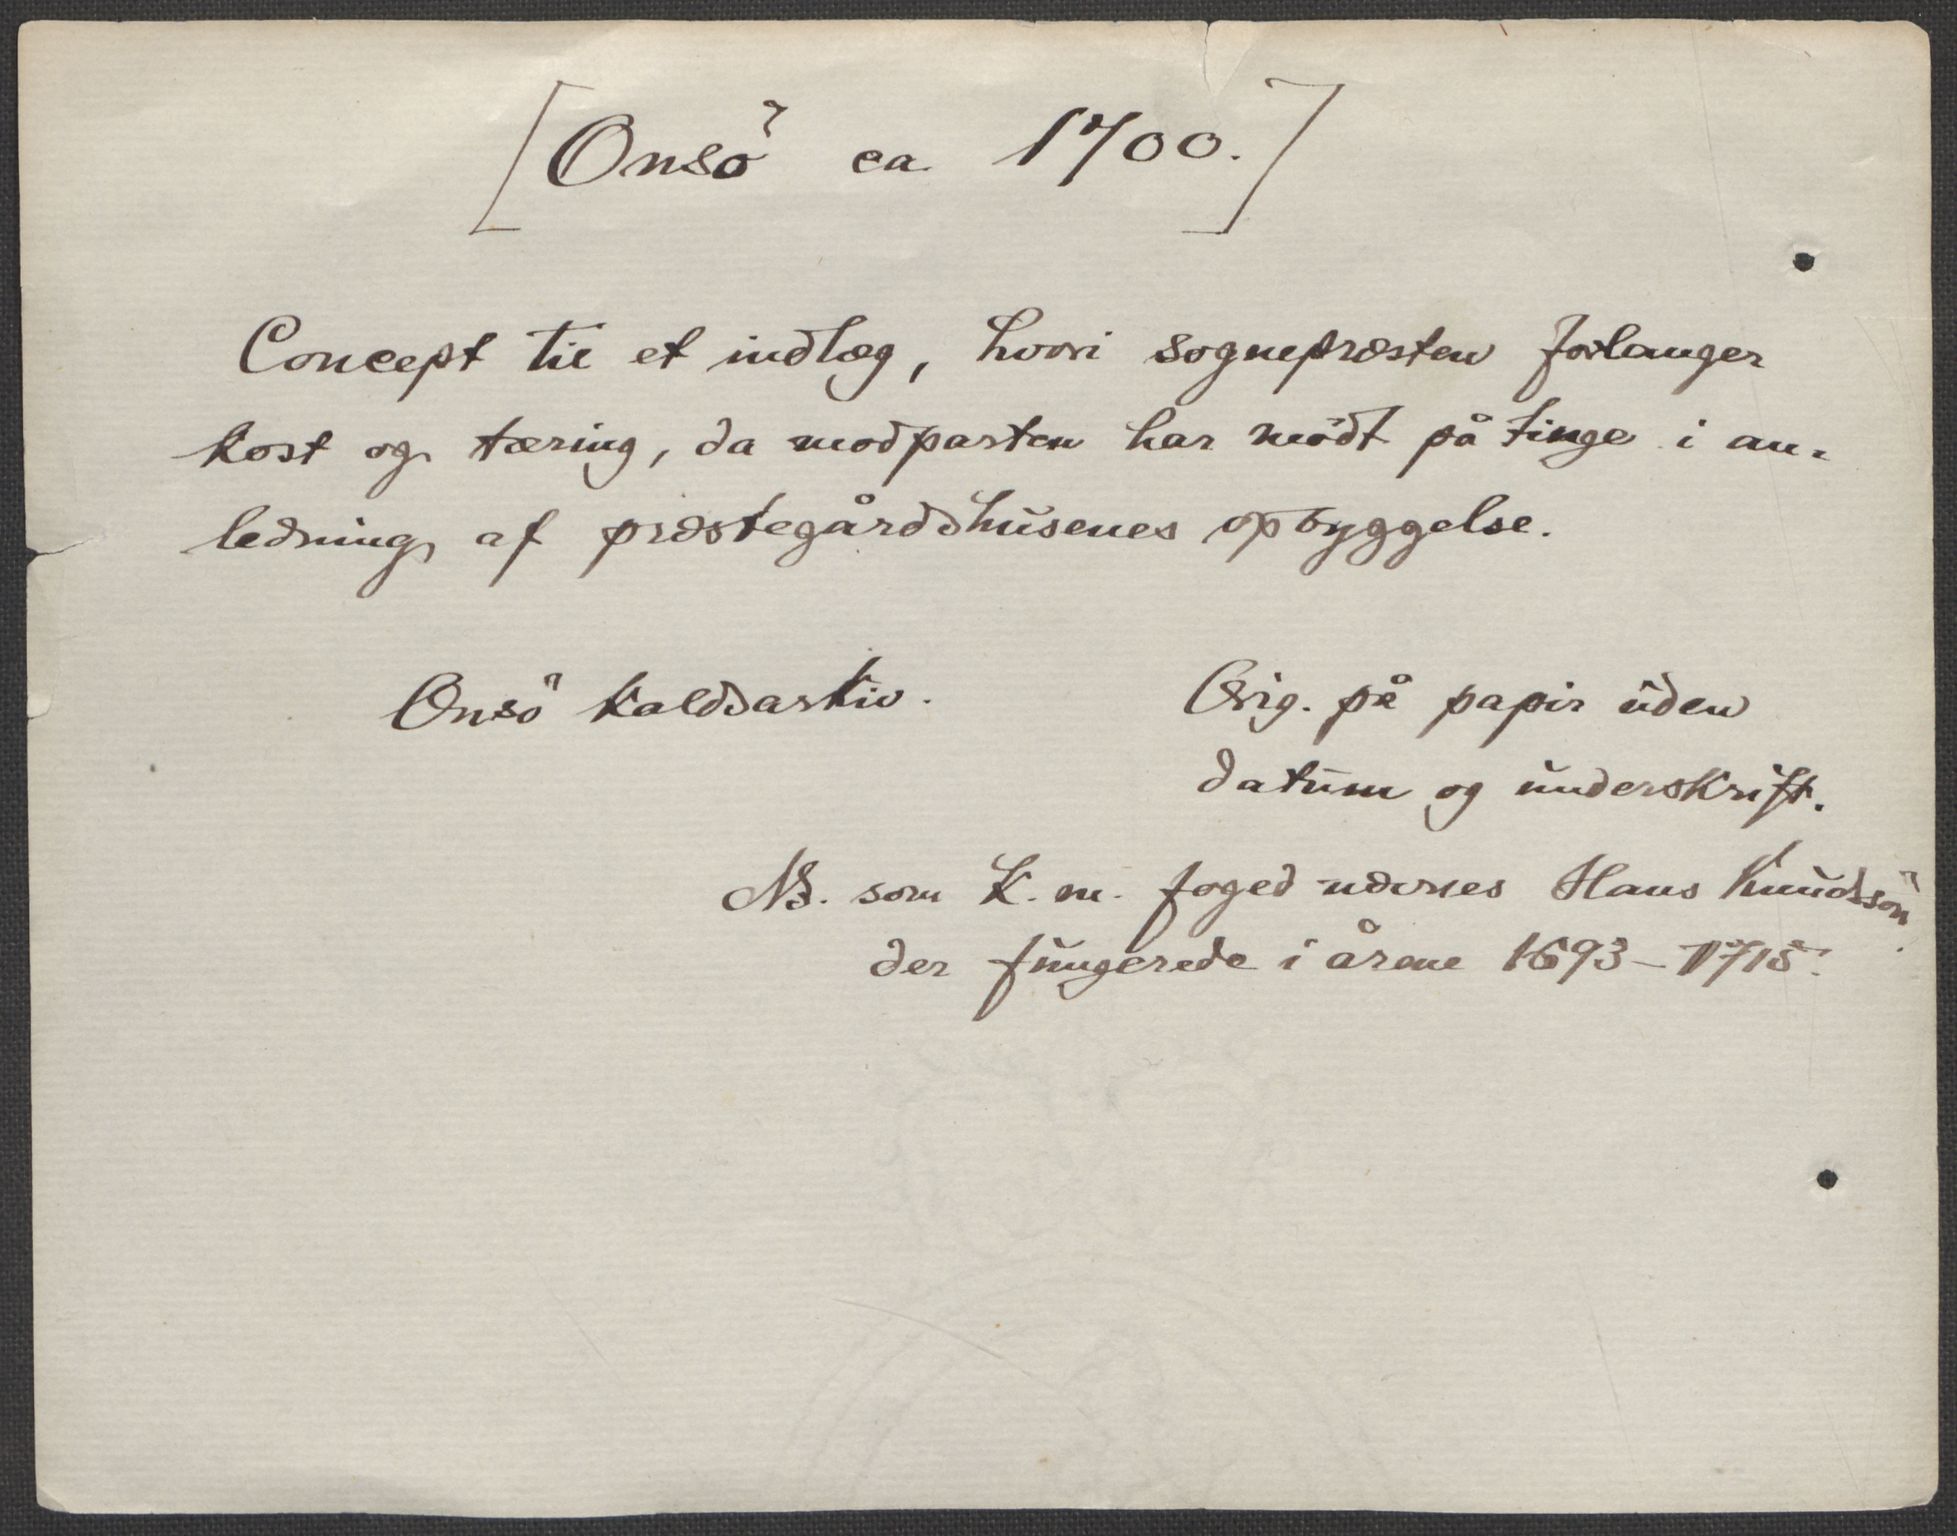 [Onsö ca. 1700.]
Concept til et indlæg, hvori sognepræsten forlanger
kost og tæring, da modparten har mödt på tinge i an-
ledning af præstegårdshusenes opbyggelse.
Onsö kaldsarkiv.
Orig. på papir uden
datum og underskrift.
NB. som K. m. foged nævnes Hans Knudssön
der fungerede i årene 1693-1715.